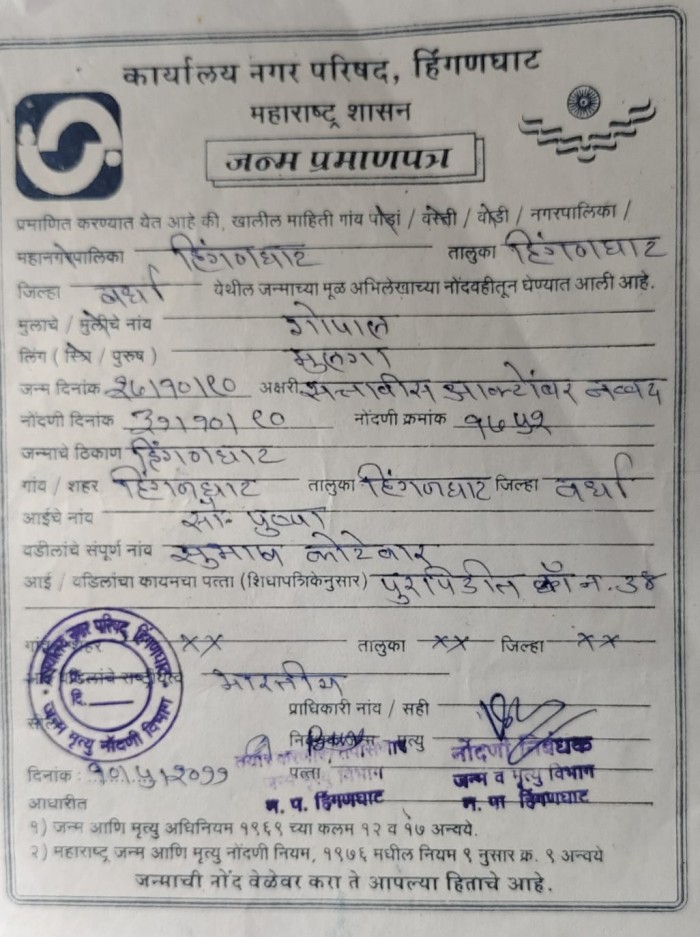 कार्यालय नगर परिषद, हिंगणघाट
महाराष्ट्र शासन
जन्म प्रमाणपत्र
प्रमाणित करण्यात येत आहे की, खालील माहिती गांव पोडां / वस्ती / वाडी / नगरपालिका /
महानगरपालिका हिंगणघाट तालुका हिंगणघाट
जिल्हा वर्धा येथील जन्माच्या मूळ अभिलेखाच्या नोंदवहीतून घेण्यात आली आहे.
मुलाचे / मुलीचे नांव गोपाल
लिंग ( स्त्रि / पुरुष ) मुलगा
जन्म दिनांक २७/१०/९० अक्षरी सत्तावीस आक्टोंबर नव्वद
नोंदणी दिनांक ३१/१०/९० नोंदणी क्रमांक १७५१
जन्माचे ठिकाण हिंगणघाट
गांव / शहर हिंगणघाट तालुका हिंगणघाट जिल्हा वर्धा
आईचे नांव सौ. पुष्पा
वडीलांचे संपूर्ण नांव सुभाष कोटेवार
आई / वडिलांचा कायमचा पत्ता (शिधापत्रिकेनुसार) पुरपिडीत कॉ न. ३४
xx तालुका xx जिल्हा xx
भारतीय
प्राधिकारी नांव / सही
मृत्यु नोंदणी निबंधक
पत्ता विभाग जन्म व मृत्यु विभाग
दिनांक : १०/५/२०११
आधारीत न. प. हिंगणघाट न. पा हिंगणघाट
कार्यालय नगर परिषद, हिंगणघाट
जन्म मृत्यु नोंदणी विभाग
दि.
१) जन्म आणि मृत्यु अधिनियम १९६९ च्या कलम १२ व १७ अन्वये.
२) महाराष्ट्र जन्म आणि मृत्यु नोंदणी नियम, १९७६ मधील नियम ९ नुसार क्र. ९ अन्वये
जन्माची नोंद वेळेवर करा ते आपल्या हिताचे आहे.